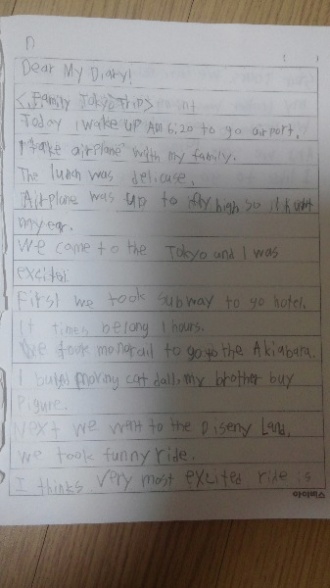 Dear My Diary!
<Family Tokyo Trip>
Today i wake up AM 6:20 to go airport,
I take airplane with my family.
The lunch was delicase,
Airplane was up to fly high so it hurt
my ear.
We come to the Tokyo and I was
excited
First we took subway to go hotel,
It times belong 1 hours.
We took monorail to go to the Akiabara.
I buyed moving cat doll, my brother buy
Pigure.
Next we went to the Diseny Land,
we took funny ride.
I thinks very most excited ride is